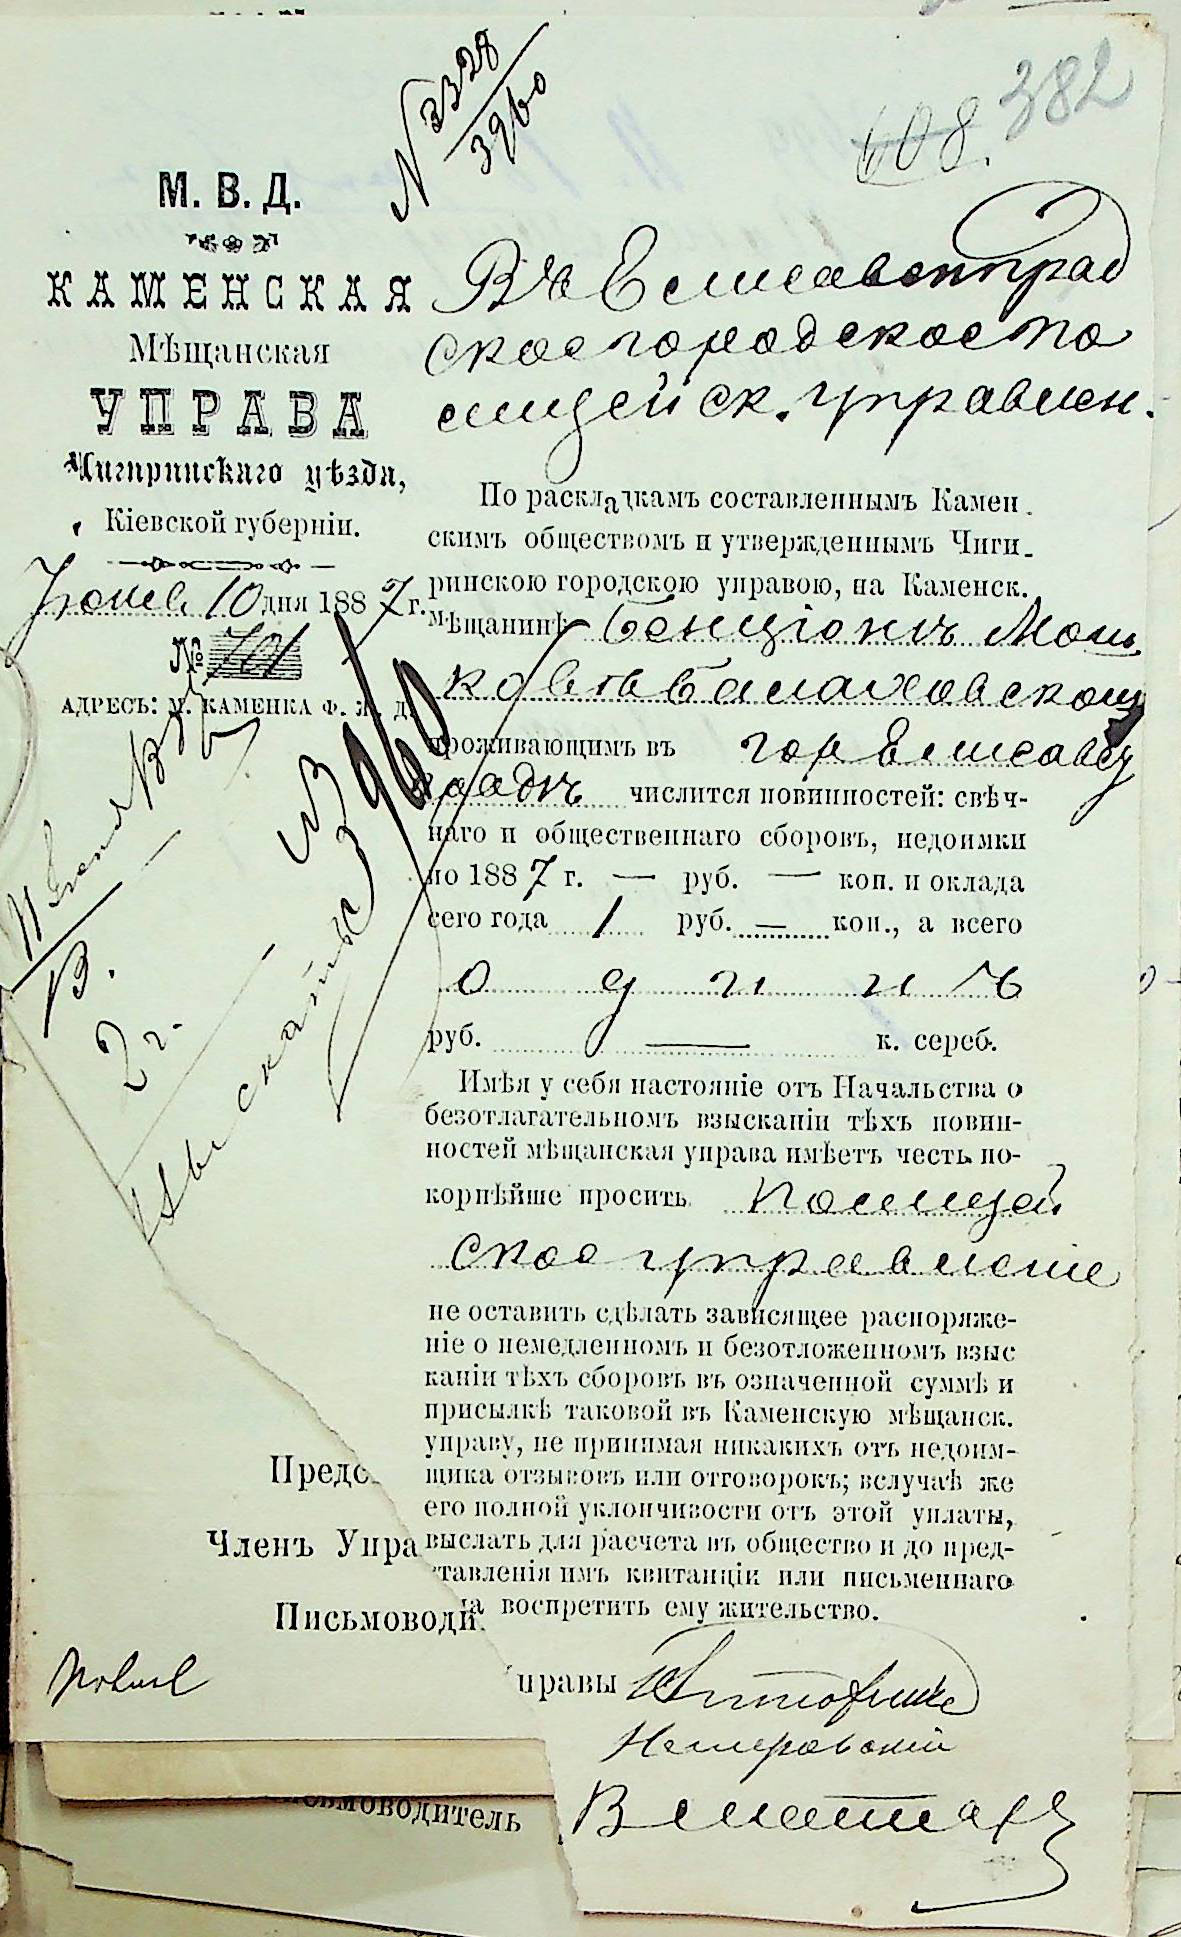 382
608.
№ 3328
3960
М. В. Д.
КАМЕНСКАЯ
Мѣщанская
УПРАВА
Чигиринскаго уѣзда,
Кіевской губерніи.
Іюня 10 дня 1887 г.
№ 701
АДРЕСЪ: М. КАМЕНКА Ф. Ж. Д.
Въ Елисаветград
ское городское по
лицейск. управлен.
По раскладкамъ составленнымъ Камен-
скимъ обществомъ и утвержденнымъ Чиги-
ринскою городскою управою, на Каменск.
мѣщанинѣ Бенціонъ Мош
ковѣ Балаховском
проживающимъ въ гор Елисавет
градъ числится повинностей: свѣч-
наго и общественнаго сборовъ, недоимки
по 1887 г. — руб. — коп. и оклада
сего года 1 руб. — коп., а всего
одинъ
руб. — к. сереб.
Имѣя у себя настояніе отъ Начальства о
безотлагательномъ взысканіи тѣхъ повин-
ностей мѣщанская управа имѣетъ честь по-
корнѣйше просить Полицей
ское управленіе
не оставить сдѣлать зависящее распоряже-
ніе о немедленномъ и безотложенномъ взыс
каніи тѣхъ сборовъ въ означенной суммѣ и
присылкѣ таковой въ Каменскую мѣщанск.
управу, не принимая никакихъ отъ недоим-
щика отзывовъ или отговорокъ; вслучаѣ же
его полной уклончивости отъ этой уплаты,
выслать для расчета въ общество и до пред-
ставленія имъ квитанціи или письменнаго
на воспретить ему жительство.
взыскать
3960
В.
2 г.
Предс
Член Упра
Письмоводи
правы
Немировскій
письмоводитель